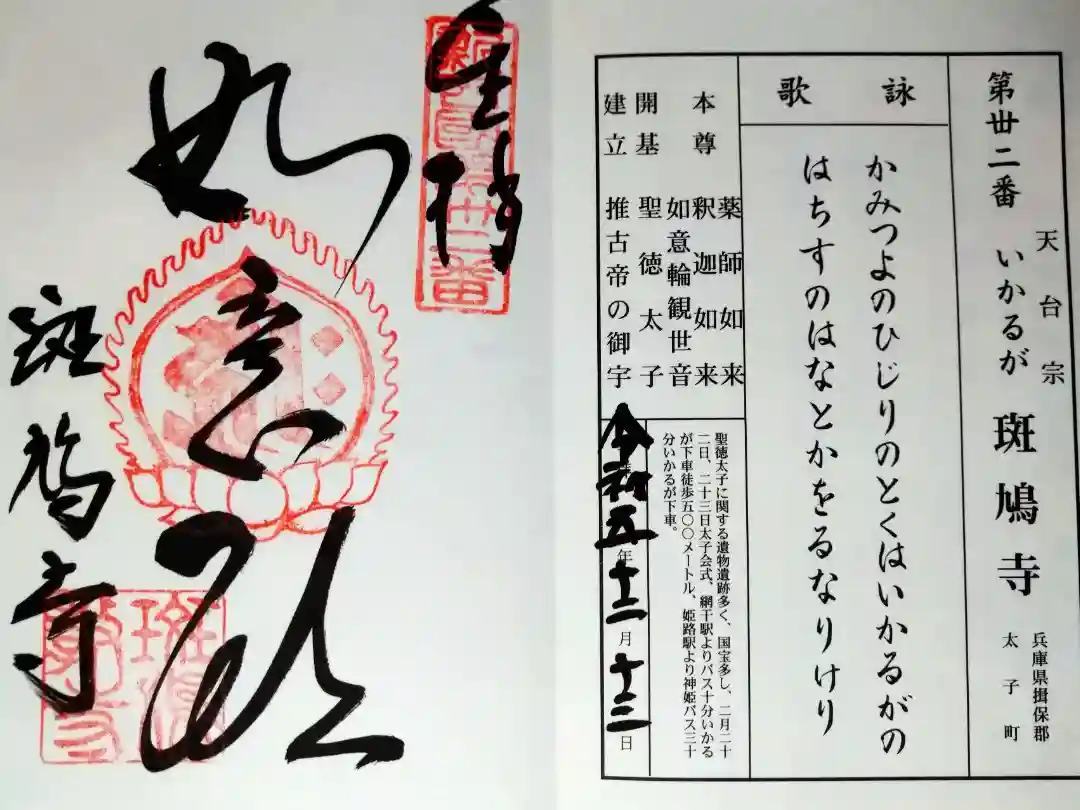 第丗二番 いかるが 斑鳩寺
天台宗
兵庫県揖保郡
太子町
詠歌
かみつよのひじりのとくはいかるがの
はちすのはなとかをるなりけり
本尊 薬師如来
釈迦如来
如意輪観世音
開基 聖徳太子
建立 推古帝の御宇
聖徳太子に関する遺物遺跡多く、国宝多し、二月二十
二日、二十三日太子会式、網干駅よりバス十分いかる
が下車徒歩五〇〇メートル、姫路駅より神姫バス三十
分いかるが下車。
令和五年十二月十三日
奉拝
斑鳩寺